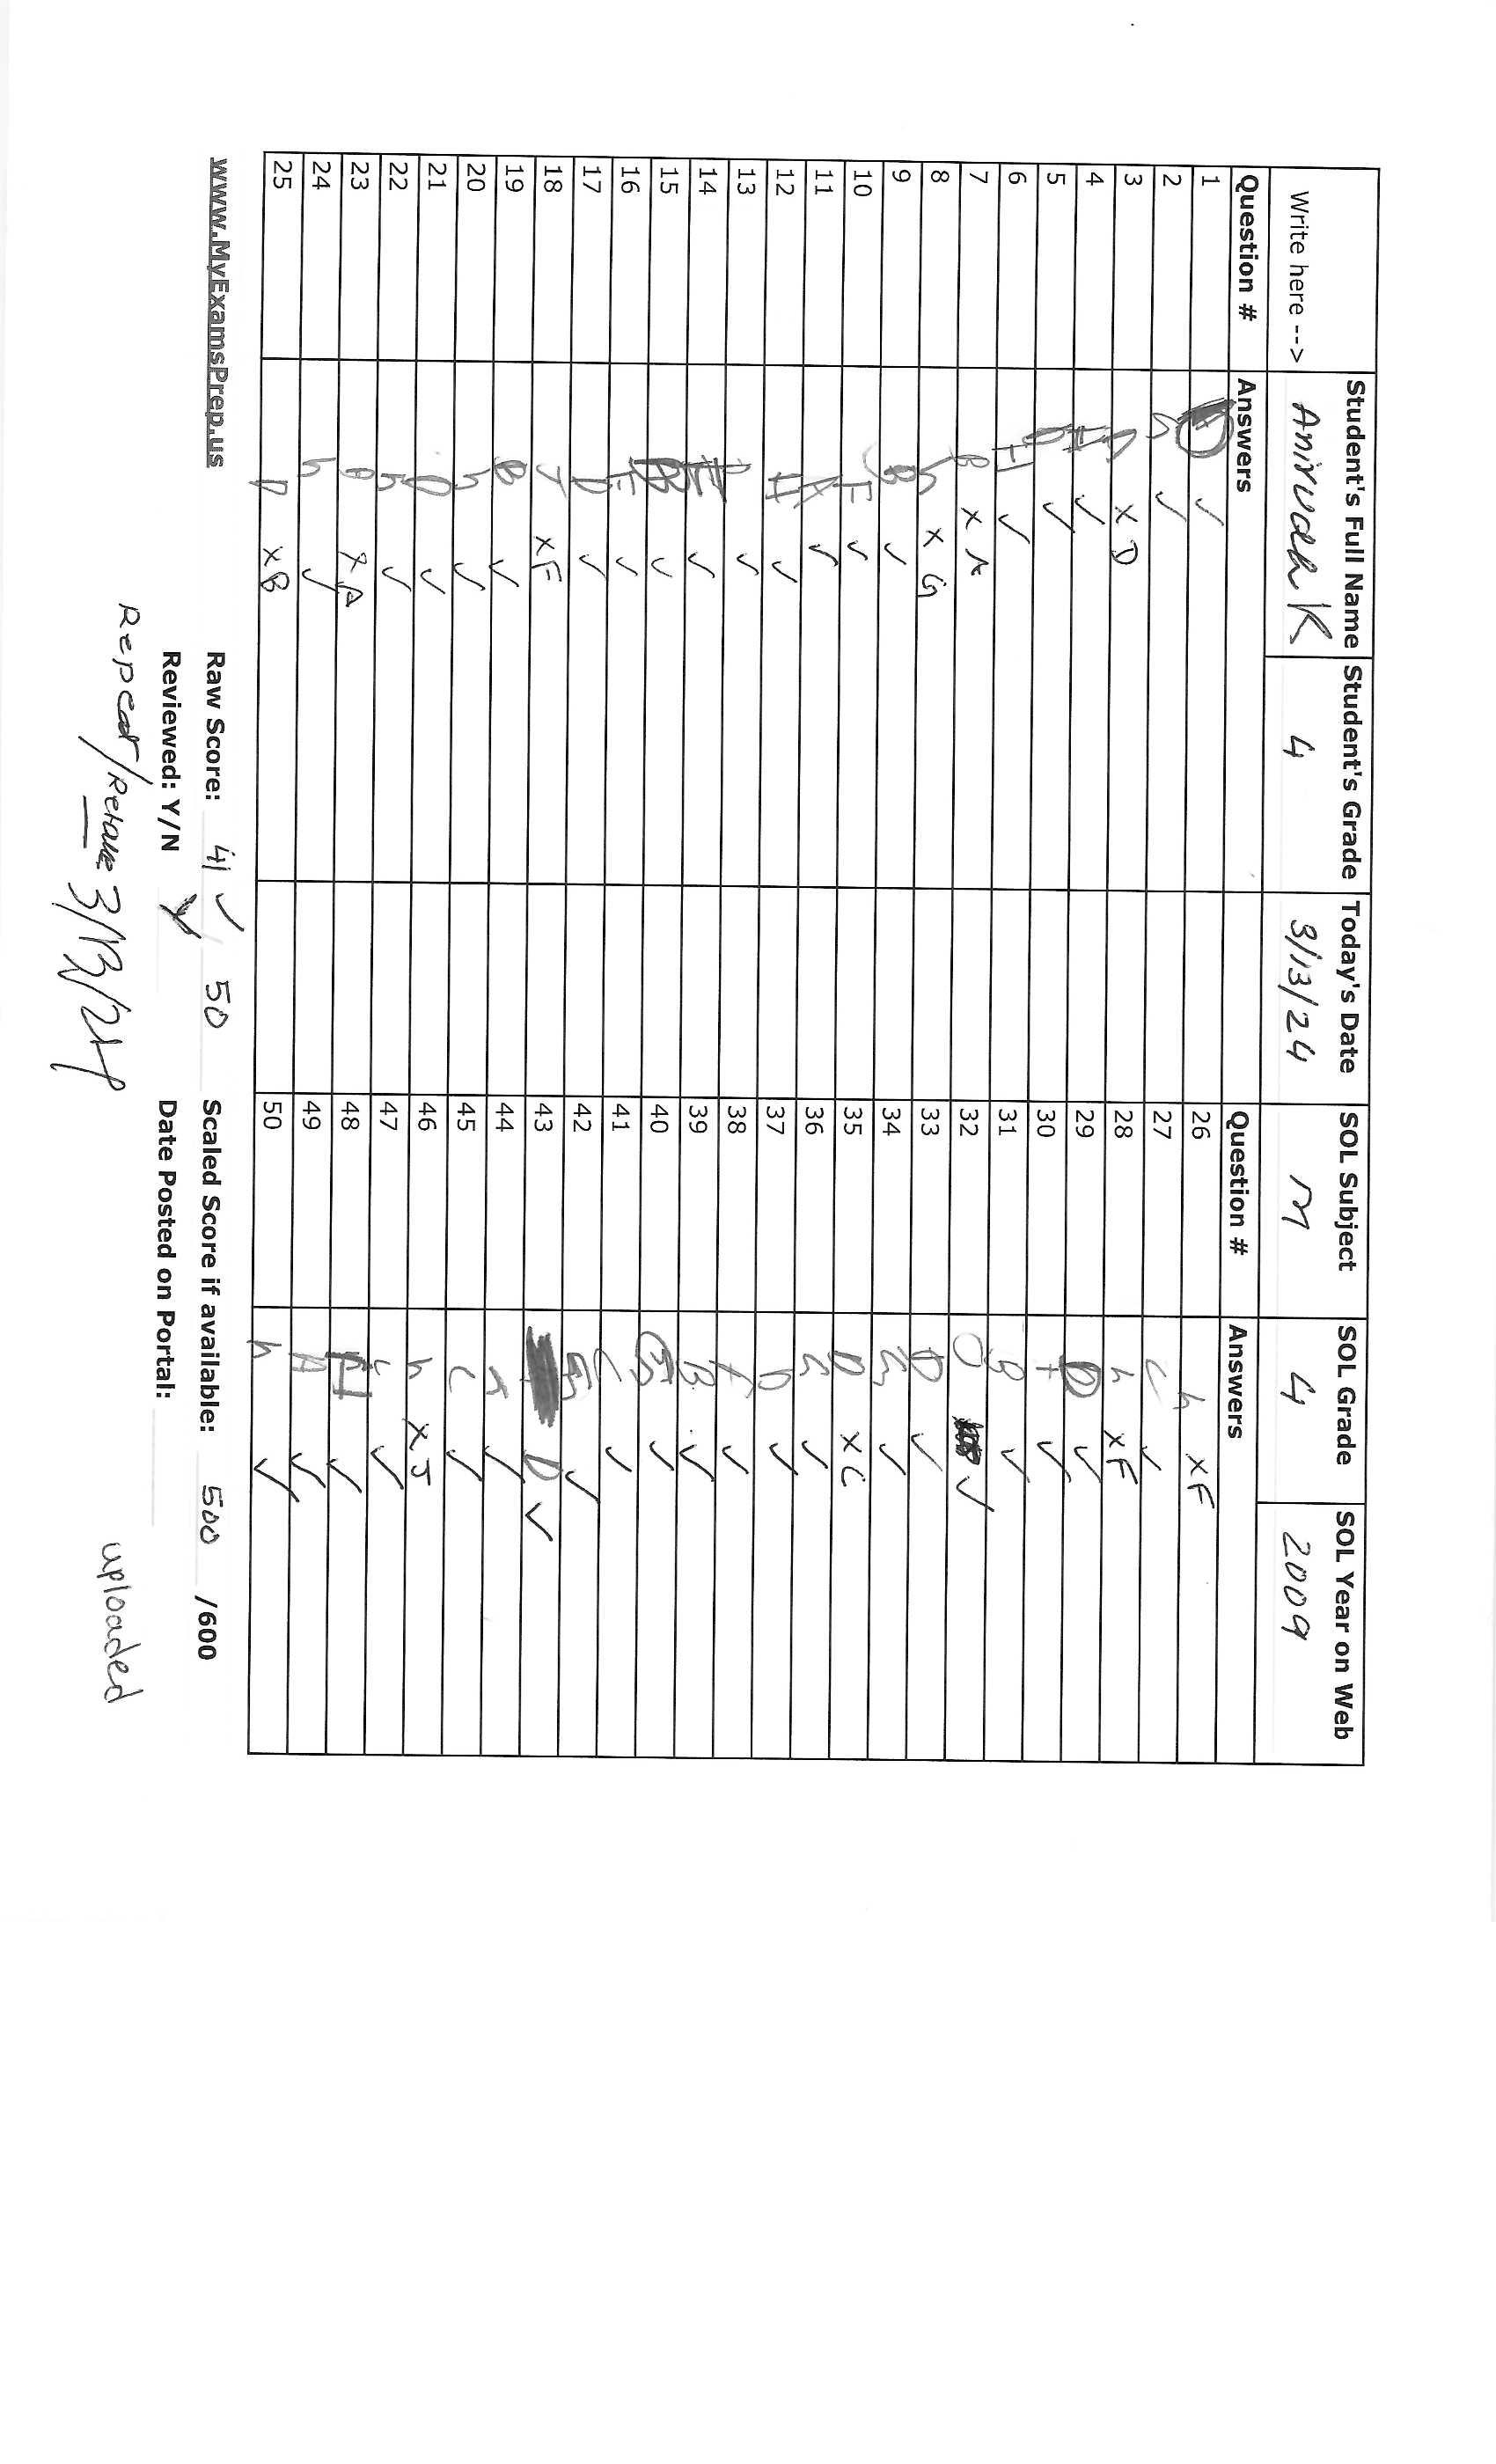 Student's Full Name Student's Grade Today's Date SOL Subject SOL Grade SOL Year on Web
Write here --> Anirudh K 4 3/13/24 M 4 2009
Question # Answers Question # Answers
1 ✓ 26 h x F
2 ✓ 27 C ✓
3 x D 28 h x F
4 H ✓ 29 D ✓
5 D ✓ 30 ✓
6 H ✓ 31 B ✓
7 B x A 32 ✓
8 h x G 33 D ✓
9 B ✓ 34 G ✓
10 F ✓ 35 D x C
11 A ✓ 36 G ✓
12 H ✓ 37 D ✓
13 ✓ 38 ✓
14 ✓ 39 B ✓
15 B ✓ 40 ✓
16 F ✓ 41 C ✓
17 D ✓ 42 G ✓
18 J x F 43 D ✓
19 B ✓ 44 J ✓
20 h ✓ 45 C ✓
21 D ✓ 46 h x J
22 h ✓ 47 C ✓
23 x A 48 H ✓
24 h ✓ 49 A ✓
25 D x B 50 h ✓
www.MyExamsPrep.us Raw Score: 41 ✓ / 50 Scaled Score if available: 500 /600
Reviewed: Y/N Y Date Posted on Portal:
Repeat/Retake 3/13/24 uploaded